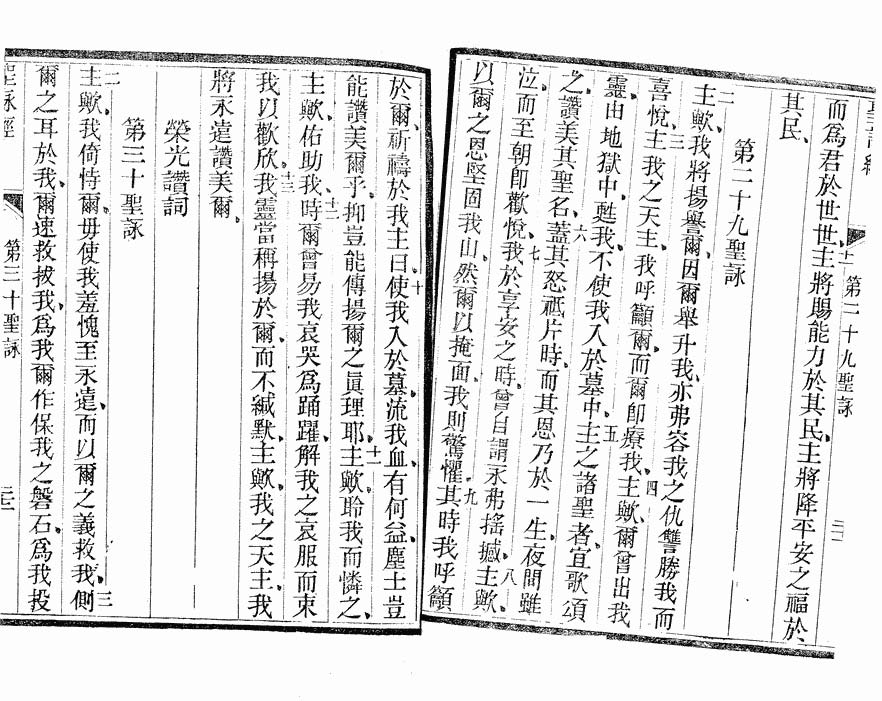 第二十九聖詠
而爲君於世世、主將賜能力於其民、主將降平安之福於
其民、
第二十九聖詠
二主歟、我將揚譽爾、因爾舉升我、亦弗容我之仇讐勝我而
喜悅、三主我之天主、我呼籲爾、而爾卽療我、四主歟、爾曾出我
靈由地獄中、甦我不使我入於墓中、五主之諸聖者、宜歌頌
之、讚美其聖名、六蓋其怒祗片時、而其恩乃於一生、夜間雖
泣、而至朝卽歡悅、七我於享安之時、曾自謂永弗搖撼、八主歟、
以爾之恩堅固我山、然爾以掩面、我則驚懼、九其時我呼籲
於爾、祈禱於我主曰、十使我入於墓、流我血、有何益、塵土豈
能讚美爾乎、抑豈能傳揚爾之眞理耶、十一主歟、聆我而憐之、
主歟、佑助我、十二時爾曾易我哀哭爲踊躍、解我之哀服而束
我以歡欣、十三我靈當稱揚於爾、而不緘默、主歟、我之天主、我
將永遠讚美爾、
榮光讚詞
第三十聖詠
二主歟、我倚恃爾、毋使我羞愧至永遠、而以爾之義救我、三側
爾之耳於我、爾速救拔我、爲我爾作保我之磐石、爲我投
聖詠經
第三十聖詠